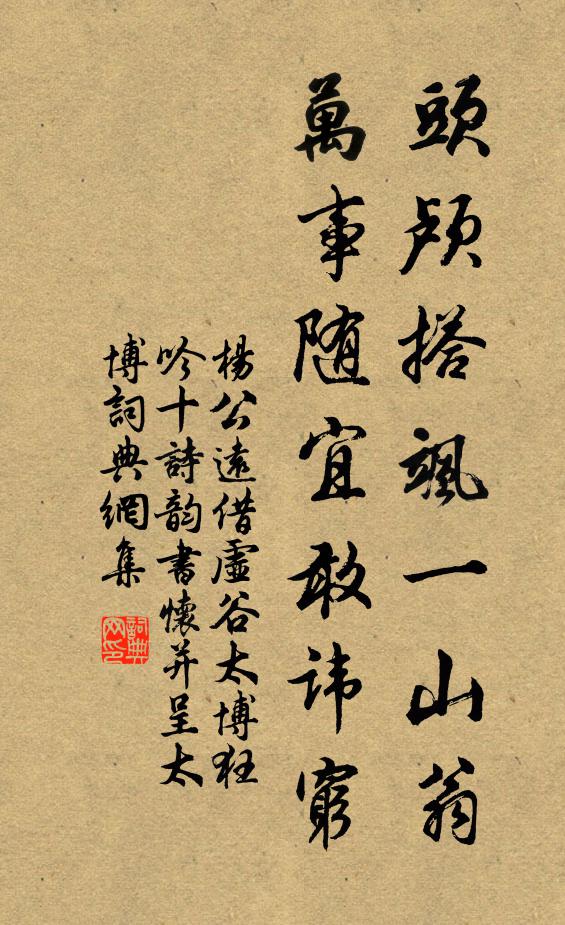 頭顱搭颯一山翁
萬事随宜敢諱窮
楊公遠借虛谷太博狂
吟十詩韵書懷并呈太
博詞典網集
詞典网印